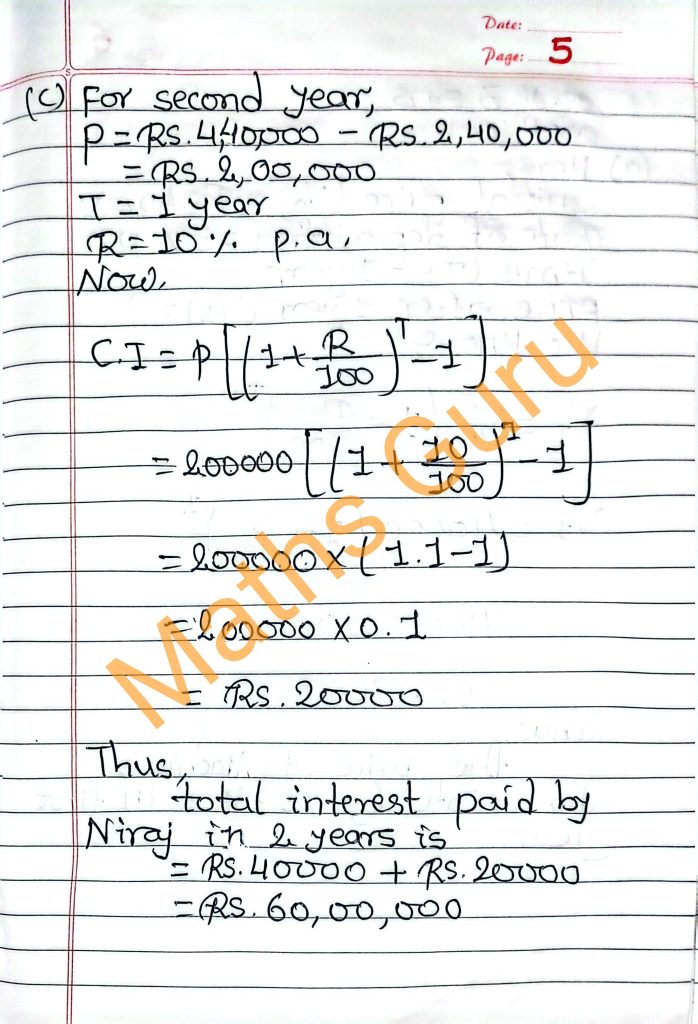 Date:
Page: 5
(C) For second year,
P = RS. 4,40,000 - RS. 2,40,000
= RS. 2,00,000
T = 1 year
R = 10% p.a.
Now,
C.I = P [(1 + R/100)^T - 1]
= 200000 [(1 + 10/100)^1 - 1]
= 200000 x (1.1 - 1)
= 200000 x 0.1
= RS. 20000
Thus,
total interest paid by
Niraj in 2 years is
= RS. 40000 + RS. 20000
= RS. 60,00,000
Maths Guru